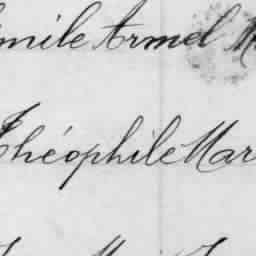 mile Armel
Théophile Mar